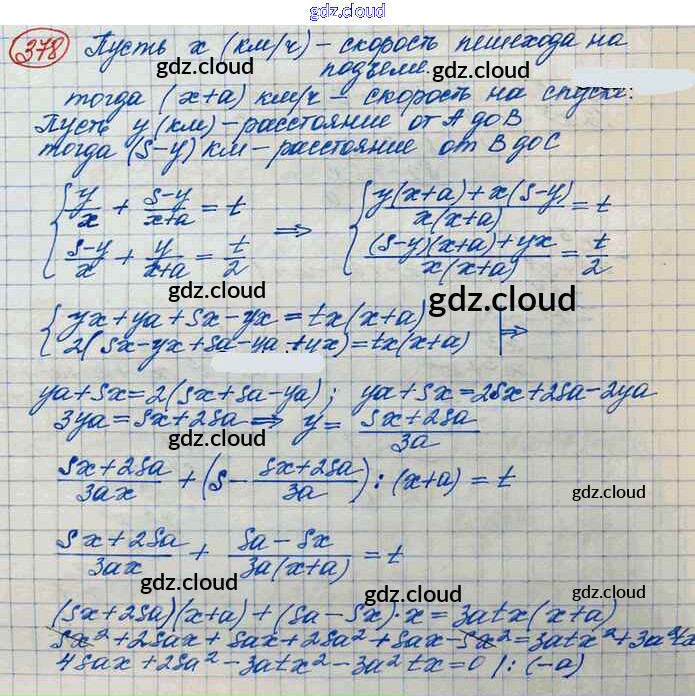 gdz.cloud
378 Пусть x (км/ч) – скорость пешехода на
подъеме.
gdz.cloud gdz.cloud
тогда (x+a) км/ч – скорость на спуске:
Пусть y (км) – расстояние от А до В
тогда (S-y) км – расстояние от В до С
gdz.cloud gdz.cloud
{ y/x + (S-y)/(x+a) = t ⇒ { (y(x+a)+x(S-y))/(x(x+a)) = t
{ (S-y)/x + y/(x+a) = t/2 { ((S-y)(x+a)+yx)/(x(x+a)) = t/2
gdz.cloud gdz.cloud
{ yx+ya+Sx-yx=tx(x+a)
{ 2(Sx-yx+Sa-ya+yx)=tx(x+a) ⇒
gdz.cloud
ya+Sx=2(Sx+Sa-ya); ya+Sx=2Sx+2Sa-2ya
3ya=Sx+2Sa ⇒ y= (Sx+2Sa)/3a
gdz.cloud gdz.cloud
(Sx+2Sa)/3ax + (S - (Sx+2Sa)/3a) : (x+a) = t
gdz.cloud
(Sx+2Sa)/3ax + (Sa-Sx)/(3a(x+a)) = t
gdz.cloud gdz.cloud
(Sx+2Sa)(x+a)+(Sa-Sx)·x=3atx(x+a)
gdz.cloud
Sx²+2Sax+Sax+2Sa²+Sax-Sx²=3atx²+3a²tx
4Sax+2Sa²-3atx²-3a²tx=0 /: (-a)
gdz.cloud gdz.cloud